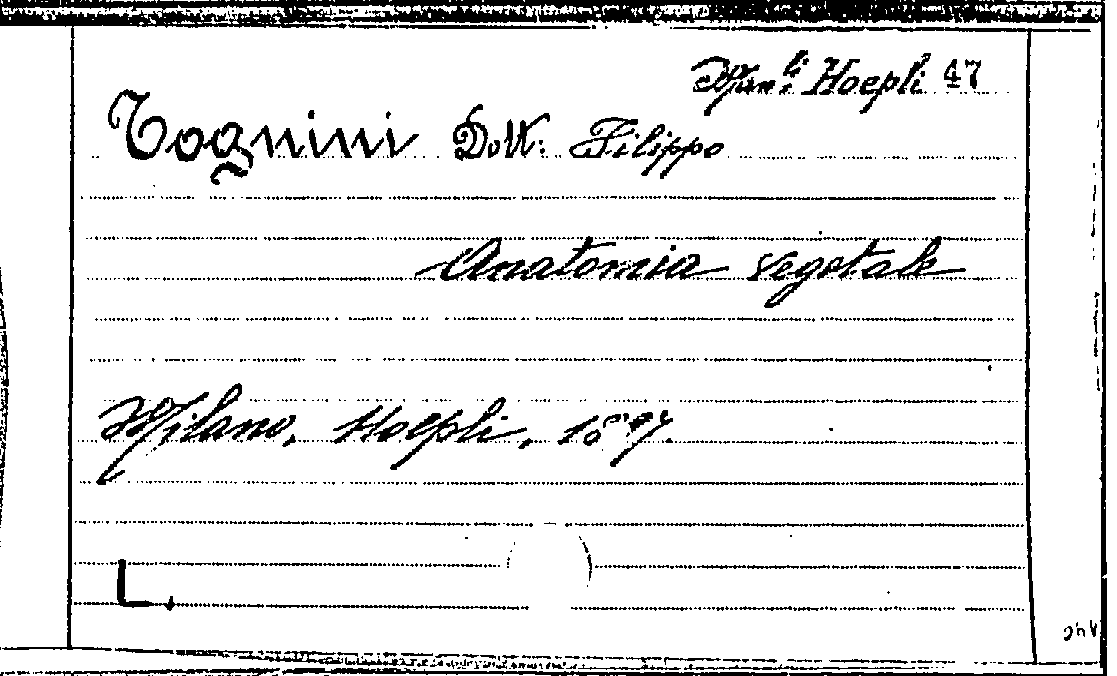 Man.li Hoepli 47
Tognini Dott. Filippo
Anatomia vegetale
Milano, Hoepli, 1897.
L.